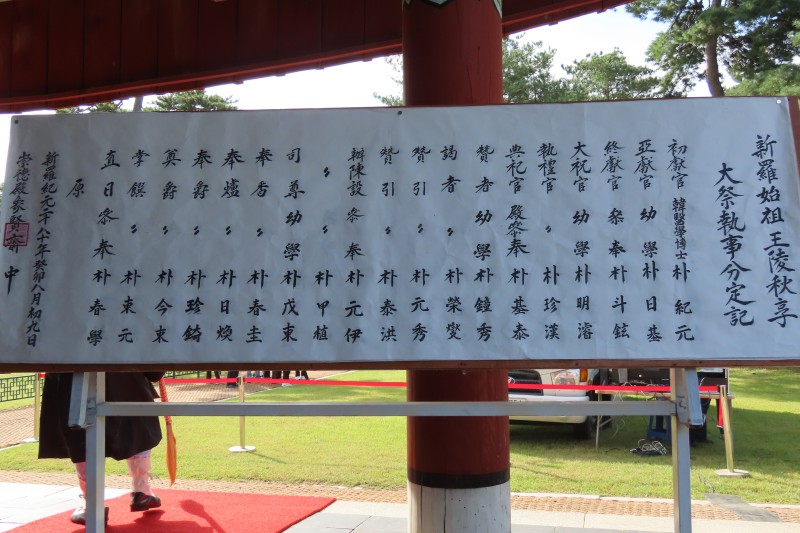 新羅始祖王陵秋享
大祭執事分定記
初獻官 韓醫學博士 朴紀元
亞獻官 幼學 朴日基
終獻官 參奉 朴斗鉉
大祝官 幼學 朴明濬
執禮官 〃 朴珍漢
典祀官 殿參奉 朴基泰
贊者 幼學 朴鐘秀
謁者 〃 朴榮燮
贊引 〃 朴元秀
贊引 〃 朴泰洪
辦陳設 參奉 朴元伊
〃 〃 朴甲植
司尊 幼學 朴戊東
奉香 〃 朴春圭
奉爐 〃 朴日煥
奉爵 〃 朴珍錡
奠爵 〃 朴今東
掌饌 〃 朴東元
直日 參奉 朴春學
原
新羅紀元二千八十年癸卯八月初九日
崇德殿參奉 齋中